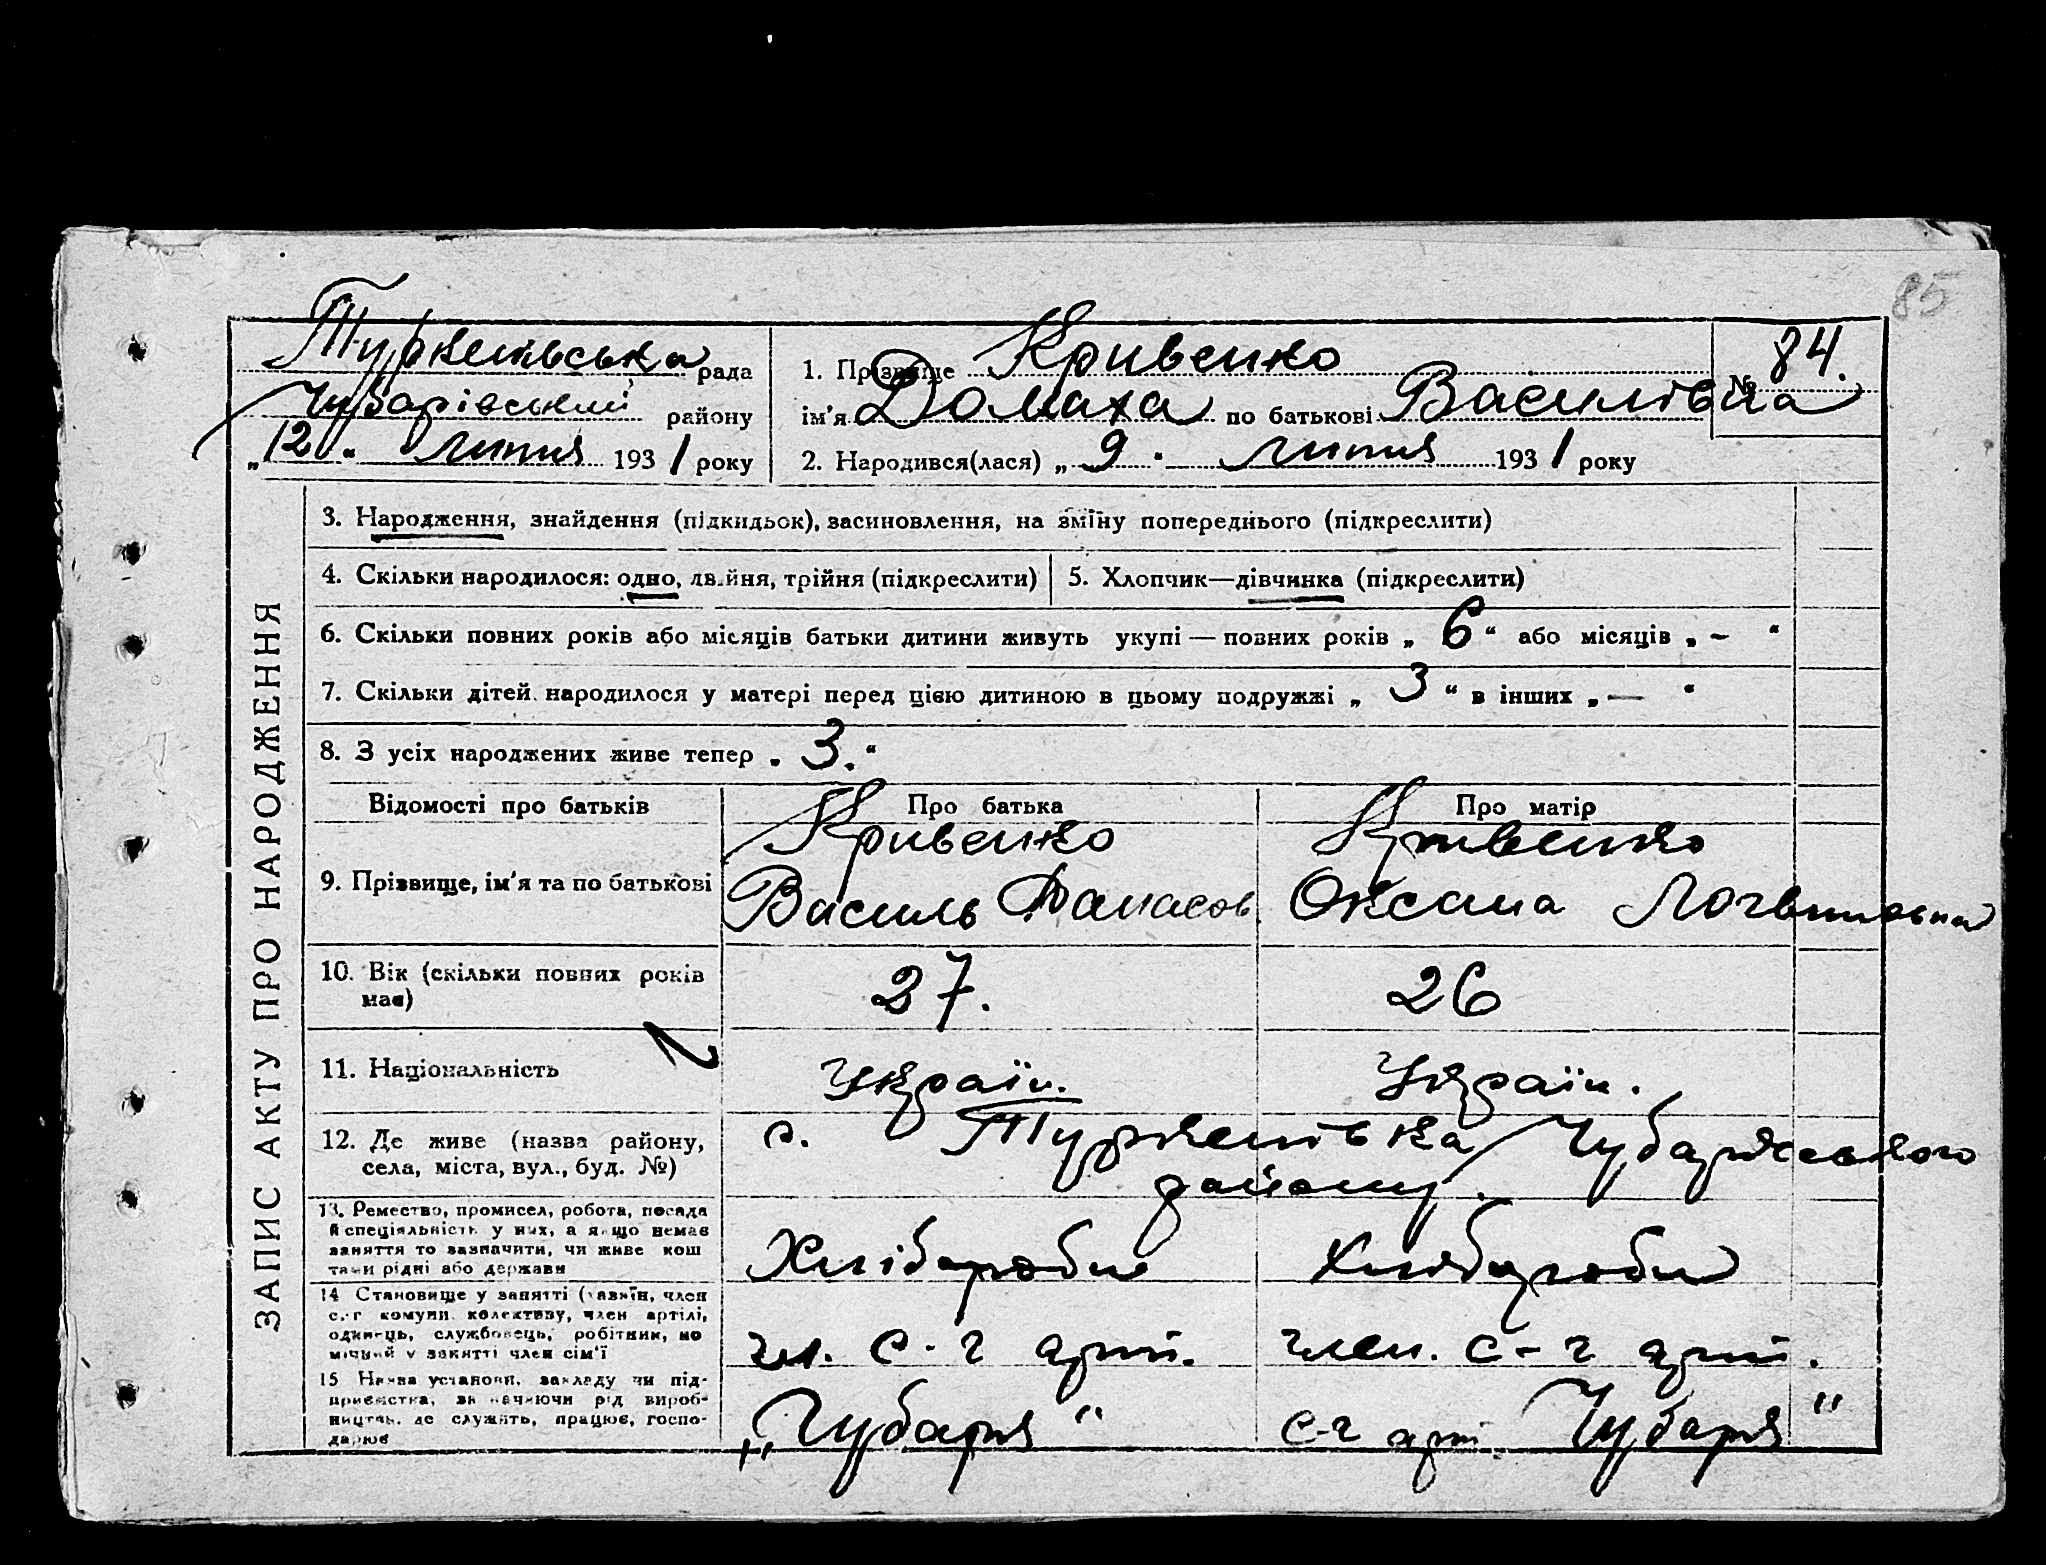 85
Туркенівська рада
Чубарівський району
„12" липня 1931 року
1. Прізвище Кривенко
ім'я Домаха по батькові Василівна
№ 84.
2. Народився(лася) „9" липня 1931 року
ЗАПИС АКТУ ПРО НАРОДЖЕННЯ
3. Народження, знайдення (підкидьок), засиновлення, на зміну попереднього (підкреслити)
4. Скільки народилося: одно, двійня, трійня (підкреслити)
5. Хлопчик—дівчинка (підкреслити)
6. Скільки повних років або місяців батьки дитини живуть укупі — повних років „ 6 " або місяців „ – "
7. Скільки дітей народилося у матері перед цією дитиною в цьому подружжі „ 3 " в інших „ — "
8. З усіх народжених живе тепер „ 3. "
Відомості про батьків
Про батька
Про матір
9. Прізвище, ім'я та по батькові
Кривенко
Василь Панасов.
Кривенко
Оксана Логвиновна
10. Вік (скільки повних років
має)
27.
26
11. Національність
Україн.
Україн.
12. Де живе (назва району,
села, міста, вул., буд. №)
с. Туркенівка Чубарівського
району.
13. Ремество, промисел, робота, посада
й спеціяльність у них, а якщо немає
заняття то зазначити, чи живе кош
тами рідні або держави
Хлібороби
Хлібороби
14 Становище у занятті (хазяїн, член
с.-г комуни. колективу, член артілі,
одинець, службовець, робітник, по
мічний у занятті член сім'ї
чл. с-г арт.
член. с-г арт.
15 Назва установи, закладу чи під-
приємства, зазначаючи рід вироб-
ництва, де служить, працює, госпо-
дарює
„Чубаря"
с-г арт. Чубаря"